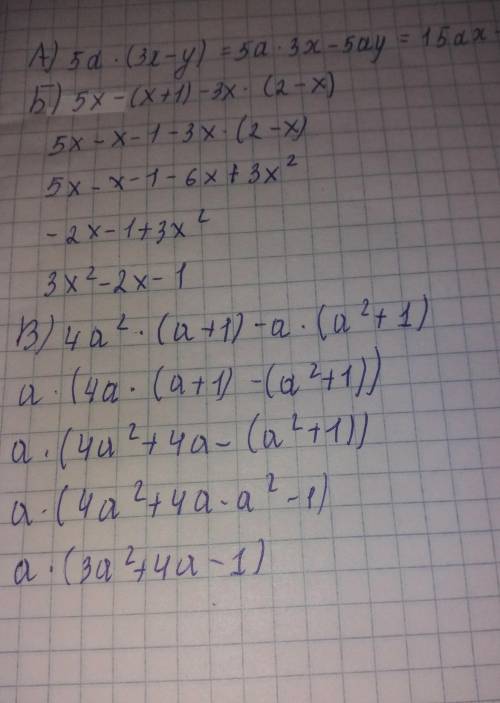 А) 5a · (3x-y) = 5a · 3x - 5ay = 15ax
Б) 5x - (x+1) - 3x · (2-x)
5x - x - 1 - 3x · (2-x)
5x - x - 1 - 6x + 3x²
-2x - 1 + 3x²
3x² - 2x - 1
В) 4a² · (a+1) - a · (a²+1)
a · (4a · (a+1) - (a²+1))
a · (4a² + 4a - (a²+1))
a · (4a² + 4a - a² - 1)
a · (3a² + 4a - 1)